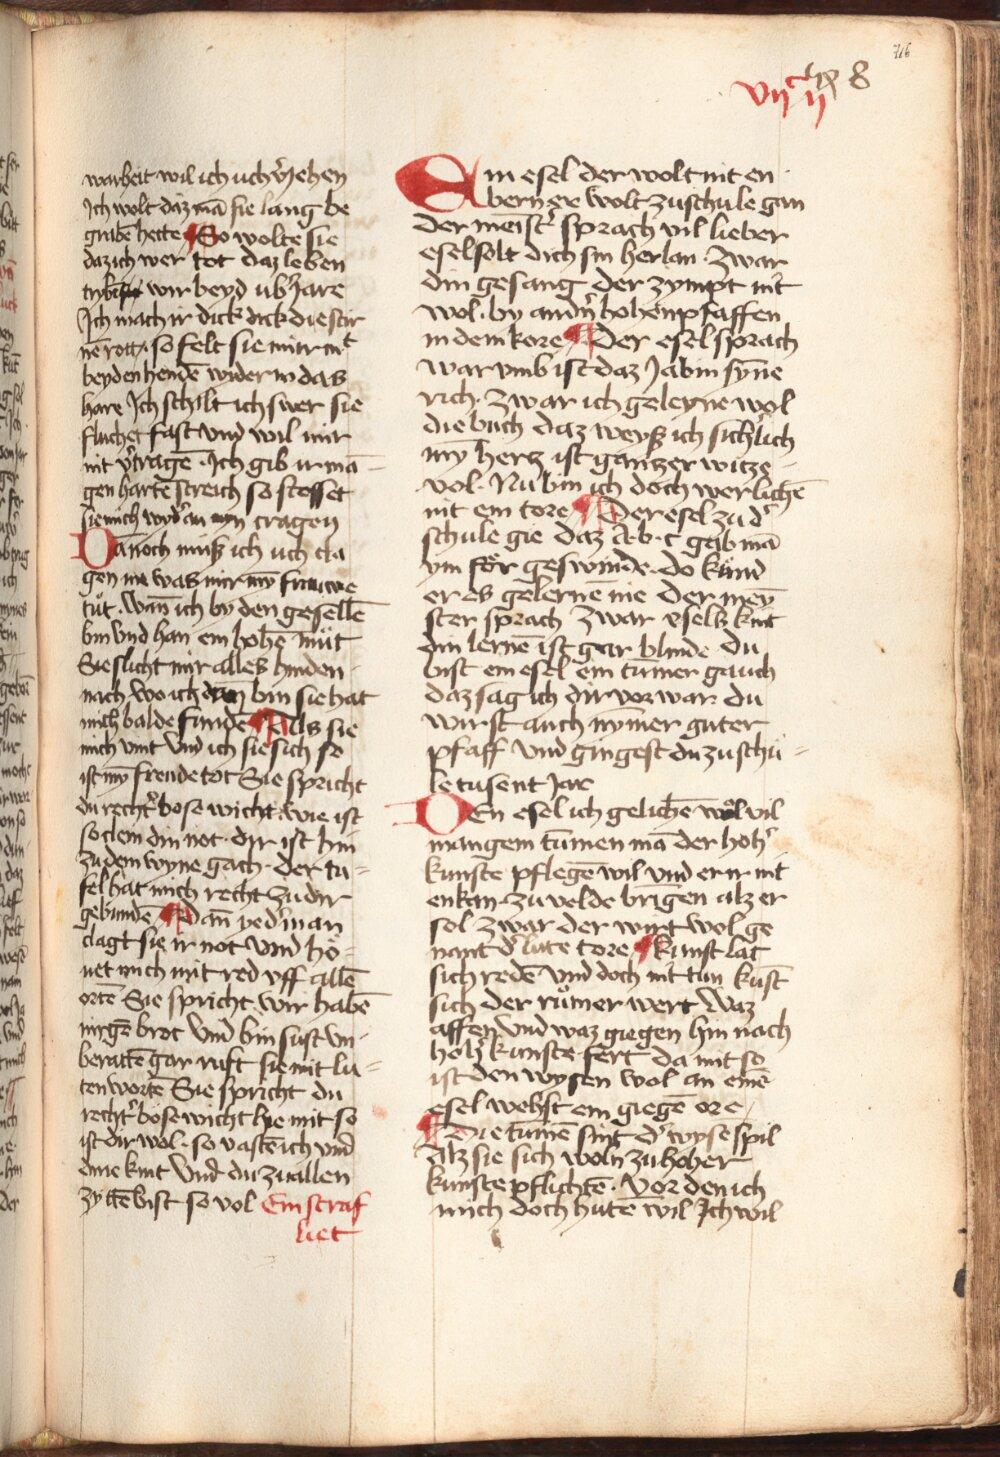 716
vij^c ij
ix 8
warheit wil ich uch v̾jehen
Ich wolt daz mā sie lang be
grabē hette ¶ So wolte sie
daz ich wer tot daz leben
trybē wir beyd ub̾ Jare
Ich mach ir dick dick die stir
nē rott. so felt sie mir mit
beyden hendē wider in das
hare Ich schilt ich swer sie
fluchet fast vnd wil mir
nit v̾tragē . Ich gib ir mā
gen harte streich so stosset
sie mich wyd̾ an myn cragen
Dānoch můß ich uch cla
gen me was mir mȳ frauwe
tůt . Wañ ich by den gesellē
bin vnd han ein hohē můt
Sie slicht mir alles hinden
nach wo ich dan bin sie hat
mich balde fundē ¶ Als sie
mich vint vnd ich sie sich so
ist mȳ freude tot Sie spricht
du recht̾ bose wicht wie ist
so dem din not . dir ist hin
zu dem wyne gach . der tu
fel hat mich recht zu dir
gebundē ¶ Dañ yed̾man
clagt sie ir not vnd hö
net mich mit red uff allē
ortē Sie spricht wir habē
nirgē brot vnd bin sust vn
beratē gar rüft sie mit lu
ten wortē Sie spricht du
recht̾ bose wicht hie mit so
ist dir wol . so vastē ich vnd
dine kint vnd du zu allen
zyttē bist so vol Ein straf
liet
Ein esel der wolt nit en
bern er wolt zu schule gan
der meist̾ sprach vil lieber
esel solt dich sin herlan . zwar
din gesang der zympt nit
wol . by andn̾ hohen pfaffen
in dem kore ¶ Der esel sprach
war vmb ist daz Ja bin sȳne
rich . zwar ich geleyne wol
die buch daz weyß ich sich̾lich
mȳ hertz ist gantzer witze
vol . Nu bin ich doch werlichē
nit ein tore ¶ Der esel zu d̾
schule gie daz A . b . c gab mā
ym för geswinde . do kund
er es gelernē nie Der mey
ster sprach zwar esels kint
din lernē ist gar blinde du
bist ein esel ein tum̄er gauch
daz sag ich dir vor war du
wirst auch nȳmer guter
pfaff vnd gingest du zu schů
le tusent Jar
Den esel ich gelichē wol wil
mangem tum̄en mā der hoh̾
kunste pflegē wil vnd er ir nit
enkan . zu velde brīgen alz er
sol zwar der wirt wol ge
nant d̾ lute tore ¶ Kunst lat
sich redē vnd doch nit tun kust̄
sich der růmer wert Waz
affen vnd waz giegen hin nach
hoh̾ kunste fert da mit so
ist den wysen wol an einē
esel wehst ein giegē ore
¶ Die tum̄ē sint d̾ wyse spil
Alz sie sich woln zu hoher
kunste pflichtē . vor den ich
mich doch hutē wil Ich wil